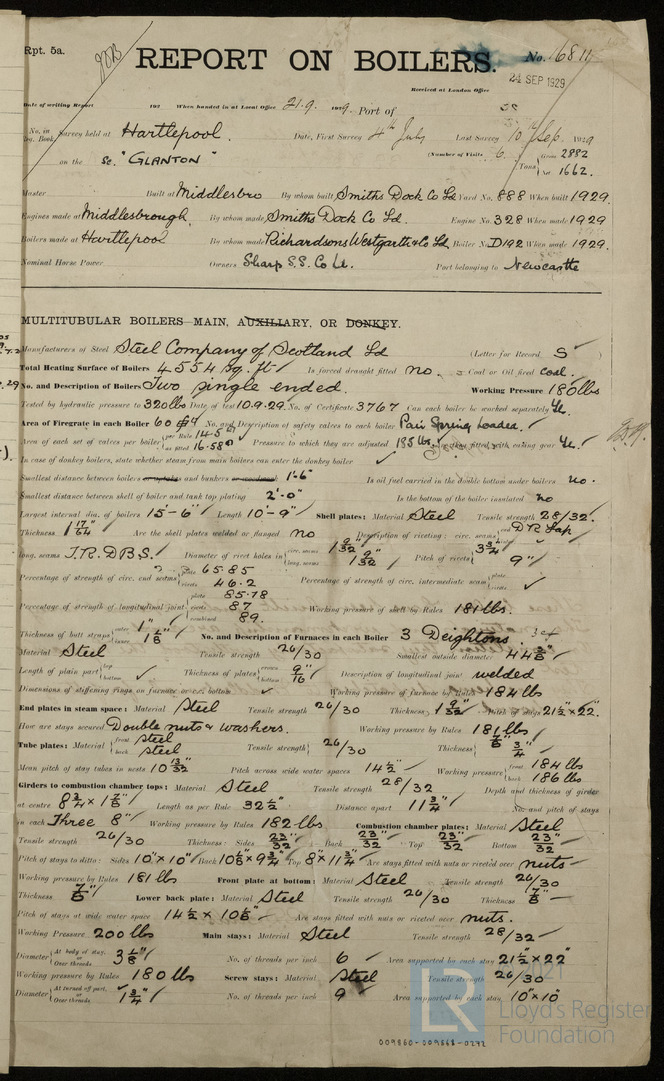 Rpt. 5a.
REPORT ON BOILERS.
No. 16811
24 SEP 1929
Received at London Office
Date of writing Report 192 When handed in at Local Office 21.9. 1929. Port of
No. in Reg. Book Survey held at Hartlepool. Date, First Survey 4th July Last Survey 10th Sep. 1929
on the Sc. "GLANTON" (Number of Visits 6. Tons Gross 2882 Net 1662.
Master Built at Middlesbro By whom built Smiths Dock Co Ld Yard No. 888 When built 1929.
Engines made at Middlesbrough. By whom made Smiths Dock Co Ld. Engine No. 328 When made 1929
Boilers made at Hartlepool By whom made Richardsons Westgarth & Co Ld Boiler No. D192 When made 1929.
Nominal Horse Power Owners Sharp S.S. Co Ld. Port belonging to Newcastle
MULTITUBULAR BOILERS MAIN, AUXILIARY, OR DONKEY.
Manufacturers of Steel Steel Company of Scotland Ld (Letter for Record S
Total Heating Surface of Boilers 4554 sq. ft Is forced draught fitted no. Coal or Oil fired coal.
No. and Description of Boilers Two single ended. Working Pressure 180 lbs
Tested by hydraulic pressure to 320 lbs Date of test 10.9.29. No. of Certificate 3767 Can each boiler be worked separately
Area of Firegrate in each Boiler 60 No. and Description of safety valves to each boiler Pair Spring Loaded.
Area of each set of valves per boiler per Rule 14.5 as fitted 16.58 Pressure to which they are adjusted 185 lbs. Are they fitted with easing gear
In case of donkey boilers, state whether steam from main boilers can enter the donkey boiler
Smallest distance between boilers or uptakes and bunkers or woodwork 1'-6" Is oil fuel carried in the double bottom under boilers no.
Smallest distance between shell of boiler and tank top plating 2'-0" Is the bottom of the boiler insulated no
Largest internal dia. of boilers 15'-6" Length 10'-9" Shell plates: Material Steel Tensile strength 28/32.
Thickness 1 17/64" Are the shell plates welded or flanged no Description of riveting: circ. seams end D.R. Lap
long. seams T.R.D.B.S. Diameter of rivet holes in circ. seams 1 9/32" long. seams 1 9/32" Pitch of rivets 3 3/4" 9"
Percentage of strength of circ. end seams plate 65.85 rivets 46.2 Percentage of strength of circ. intermediate seam plate rivets
Percentage of strength of longitudinal joint plate 85.78 rivets 87 combined 89. Working pressure of shell by Rules 181 lbs.
Thickness of butt straps outer 1" inner 1 1/8" No. and Description of Furnaces in each Boiler 3 Deightons.
Material Steel Tensile strength 26/30 Smallest outside diameter
Length of plain part top bottom Thickness of plates crown bottom 9/16" Description of longitudinal joint welded
Dimensions of stiffening rings on furnace or c.c. bottom Working pressure of furnace by Rules 184 lbs
End plates in steam space: Material Steel Tensile strength 26/30 Thickness 1 9/32" Pitch of stays 21½" × 22".
How are stays secured Double nuts & washers. Working pressure by Rules 181 lbs
Tube plates: Material front steel back steel Tensile strength 26/30 Thickness 7/8" 3/4"
Mean pitch of stay tubes in nests 10 13/32" Pitch across wide water spaces 14½" Working pressure front 184 lbs back 186 lbs
Girders to combustion chamber tops: Material Steel Tensile strength 28/32 Depth and thickness of girder
at centre 8¾" × 1 7/8" Length as per Rule 32½" Distance apart 11¾" No. and pitch of stays
in each Three 8" Working pressure by Rules 182 lbs Combustion chamber plates: Material Steel
Tensile strength 26/30 Thickness: Sides 23/32" Back 23/32" Top 23/32" Bottom 23/32"
Pitch of stays to ditto: Sides 10" × 10" Back 10 5/8" × 9¾" Top 8" × 11¾" Are stays fitted with nuts or riveted over nuts
Working pressure by Rules 181 lbs Front plate at bottom: Material Steel Tensile strength 26/30
Thickness 7/8" Lower back plate: Material Steel Tensile strength 26/30 Thickness 7/8"
Pitch of stays at wide water space Are stays fitted with nuts or riveted over nuts.
Working Pressure 200 lbs Main stays: Material Steel Tensile strength 28/32
Diameter At body of stay, or Over threads 3 1/8" No. of threads per inch 6 Area supported by each stay 21½" × 22"
Working pressure by Rules 180 lbs Screw stays: Material Steel Tensile strength 26/30
Diameter At turned off part, or Over threads 1¾" No. of threads per inch 9 Area supported by each stay 10" × 10"
2021
LR Lloyd's Register Foundation
009860-009868-0272